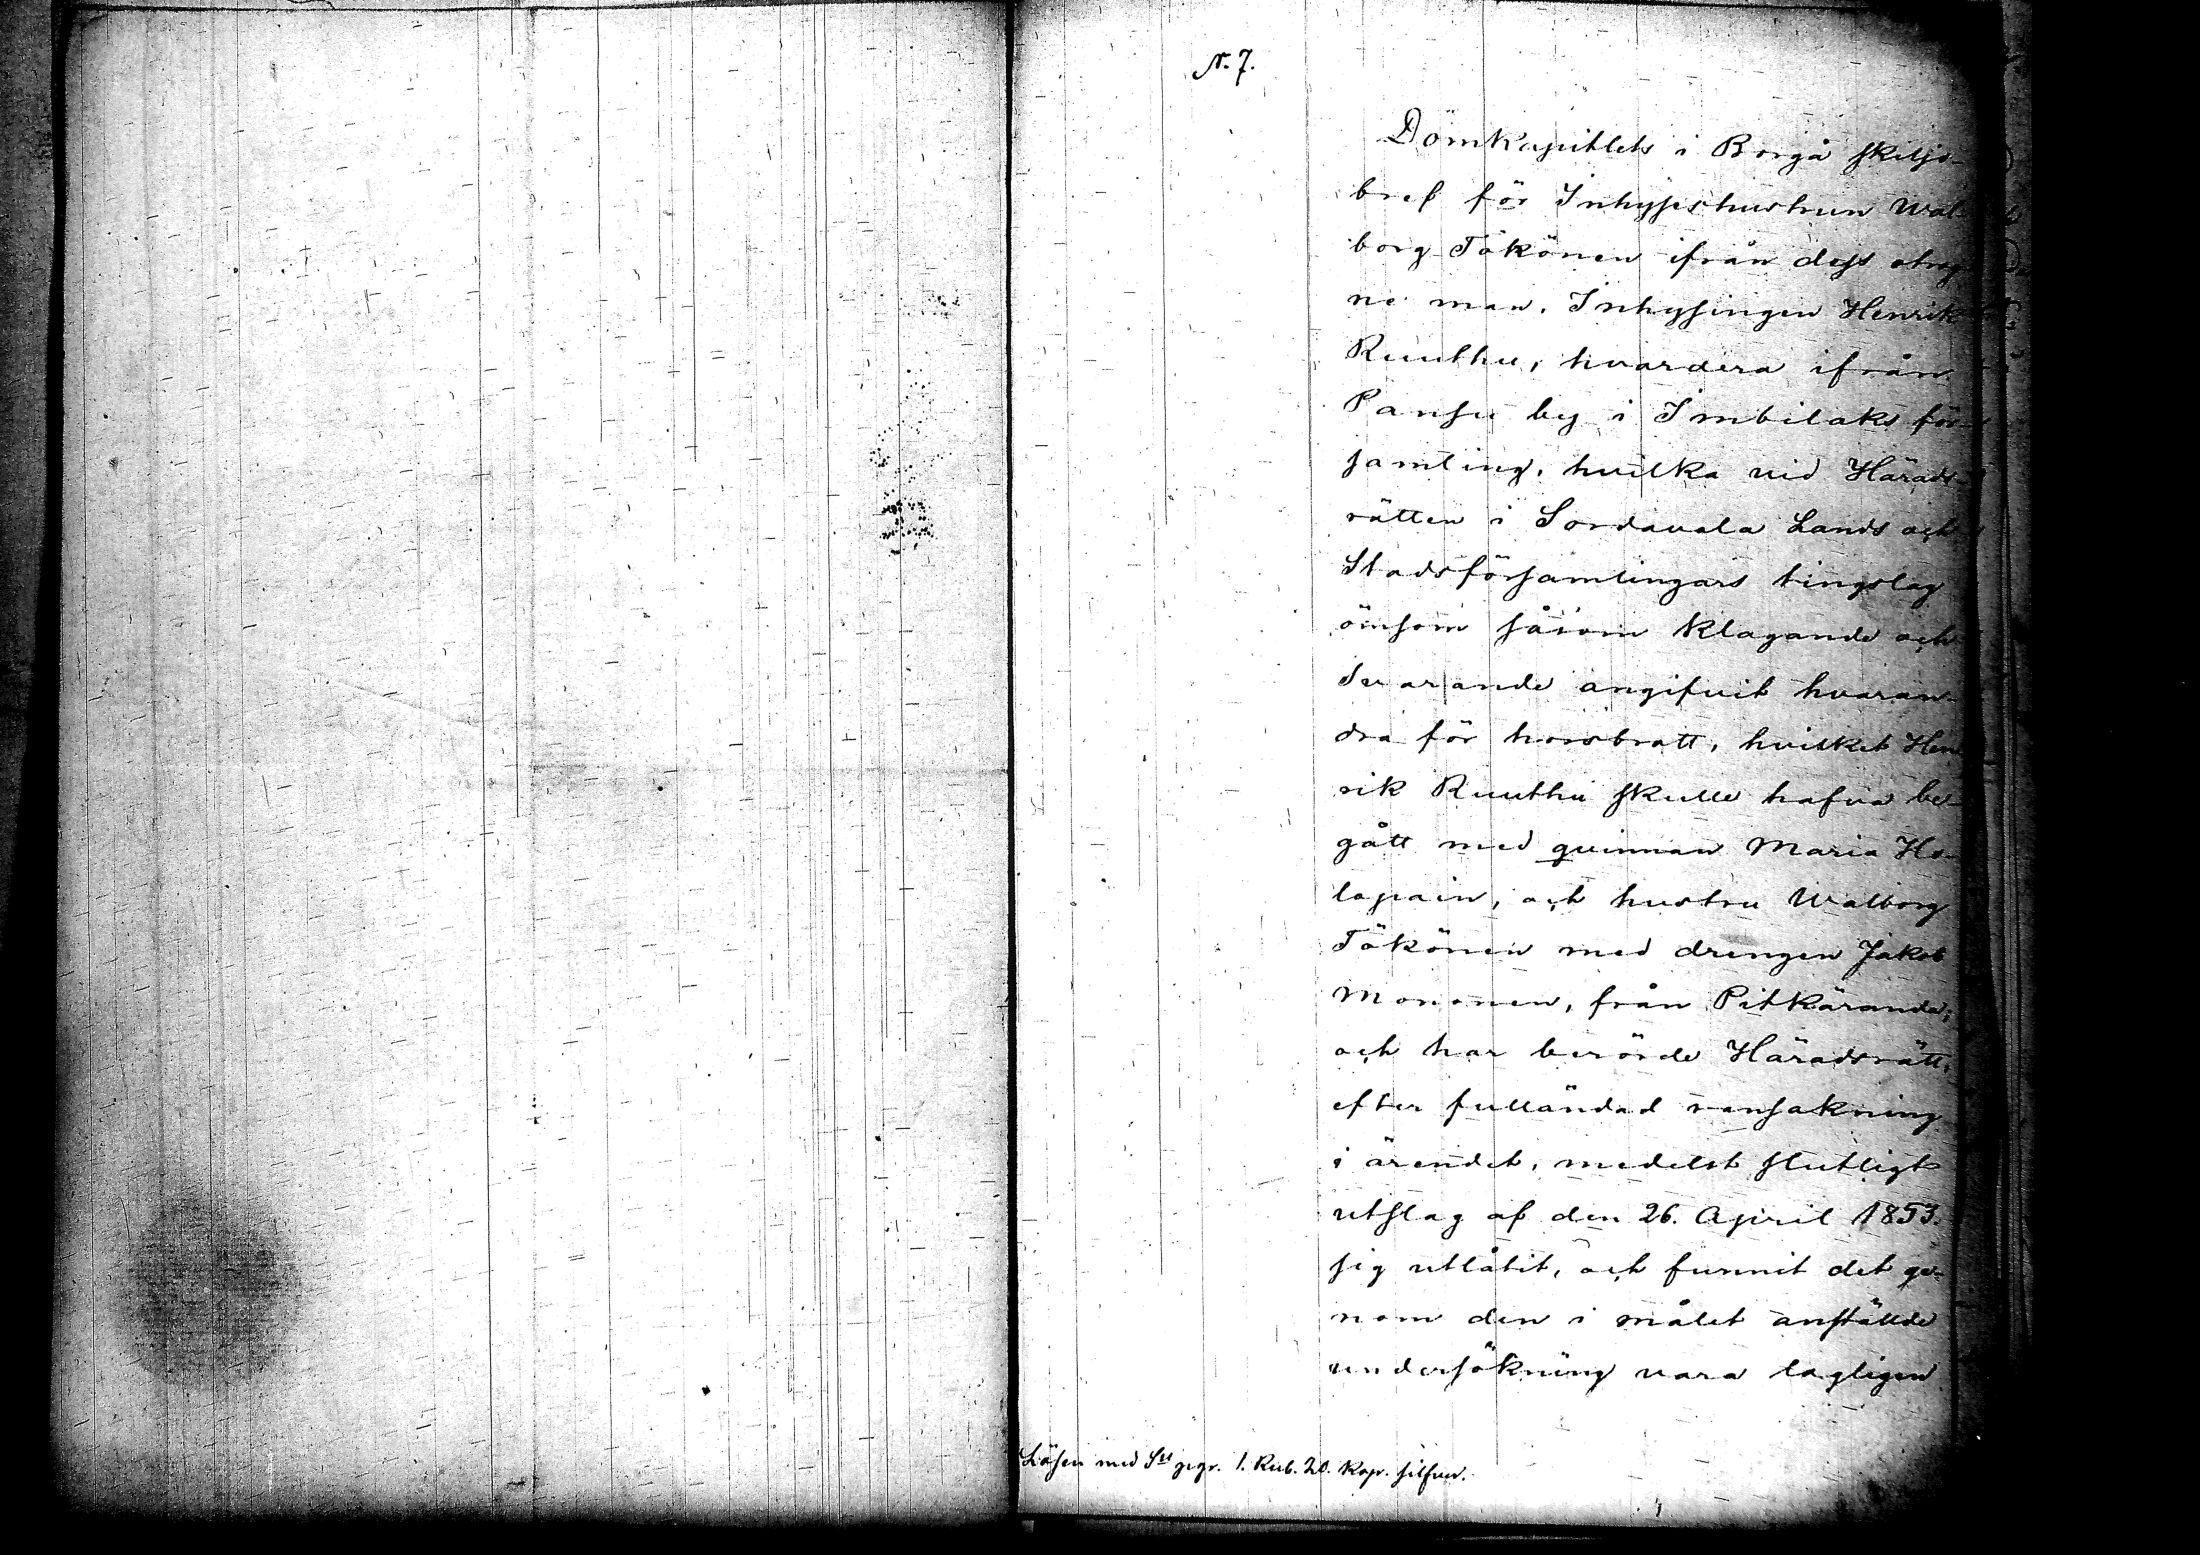 N. 7.
Domkapitlets i Borgå skiljo-
bref för Inhyseshustrun Wal-
borg Tökönen ifrån dess otrog
ne man, Inhysingen Henrik
Ruuthu, hvardera ifrån
Pansu by i Imbilaks för-
samling, hvilka vid Härads-
rätten i Sordavala Lands och
Stadsförsamlingars tingslag
ömsom såsom klagande och
svarande angifvit hvaran-
dra för horsbrott, hvilket Hen
rik Ruuthu skulle hafva be-
gått med qvinnan Maria Ho-
lopain, och hustru Walborg
Tökönen med drengen Jakob
Mononen, från Pitkäranda;
och har berörde Häradsrätt,
efter fulländad ransakning
i ärendet, medelst slutligt
utslag af den 26. April 1853.
sig utlåtit, och funnit det ge-
nom den i målet anställde
undersökning vara lagligen
Lösen med 1. Rub. 20. Kop. silfver.